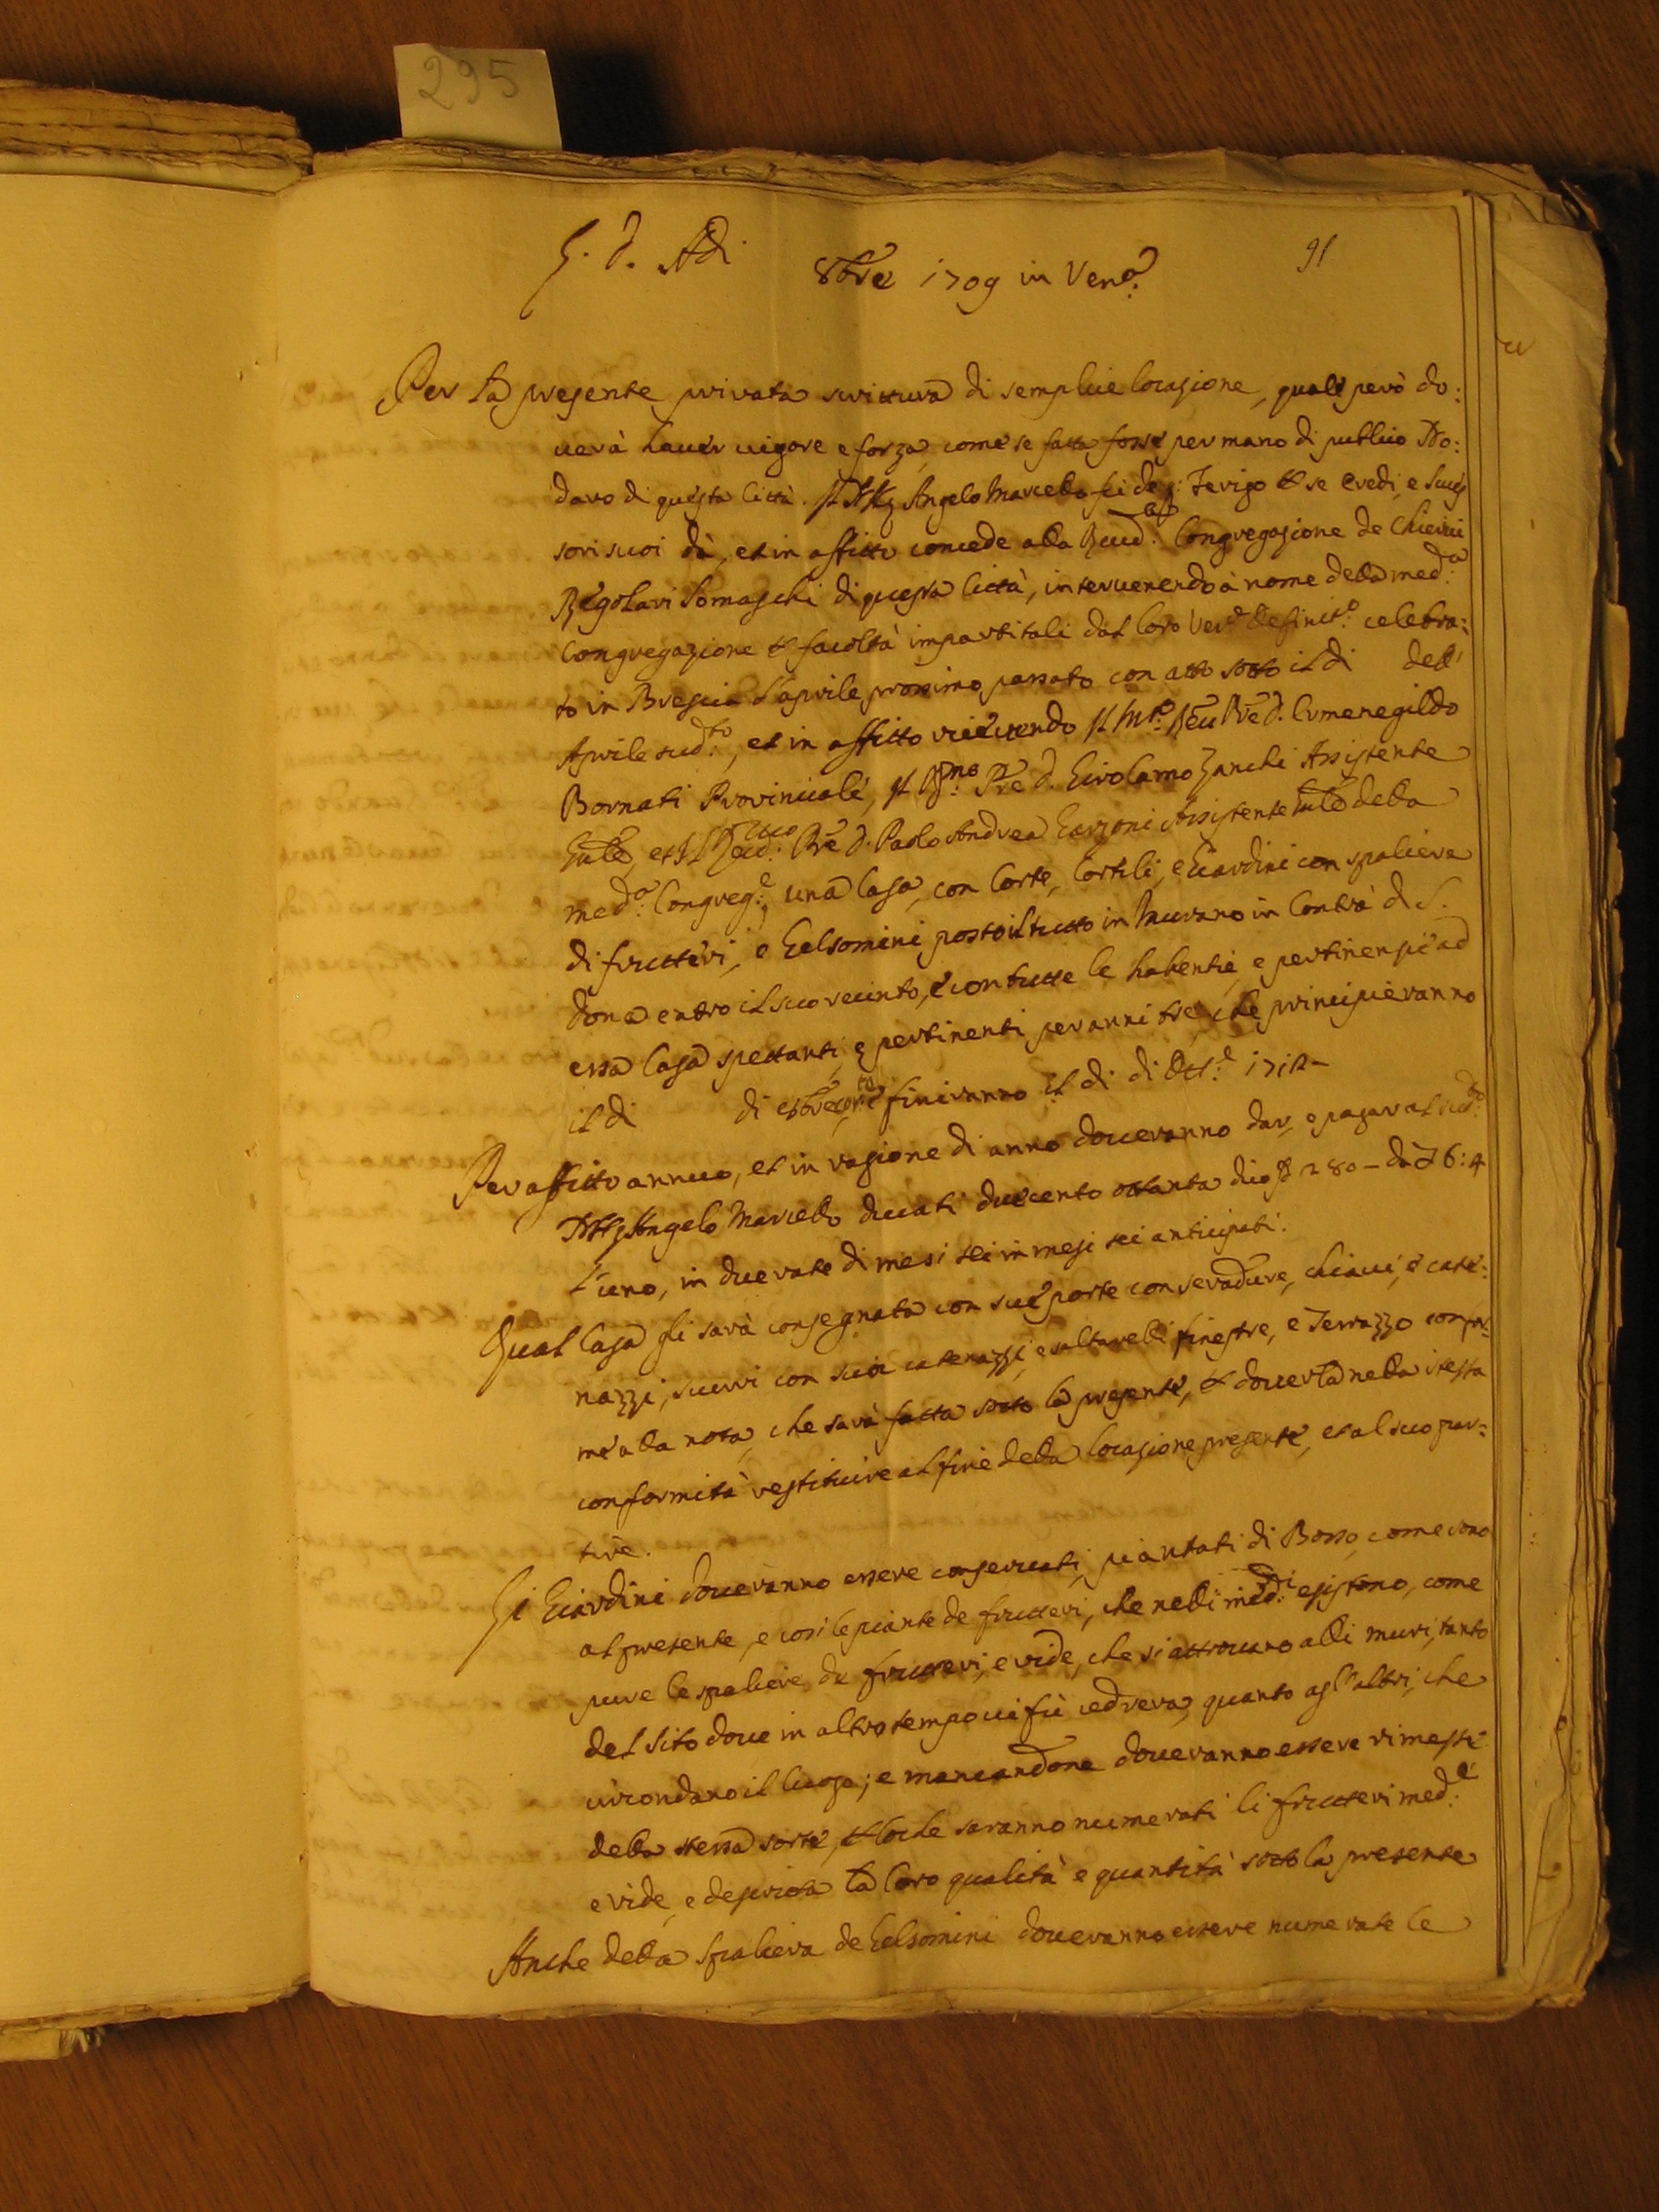 295
91
L. D. Adi 8bre 1709 in Ven.a
Per la presente privata scrittura di semplice locazione, quale però do:
uerà hauer uigore e forza, come se fatta fosse per mano di publico No:
daro di questa Città. Il N.H. Angelo Marcello fù de ſ: Ferigo per se eredi, e Succes
sori suoi dà, et in affitto concede alla Reud.a Congregazione de Chierici
Regolari Somaschi di questa Città, interuenendo à nome della med.a
Congregazione per facoltà impartitali dal loro Ven.e Definit.o celebra:
to in Brescia l'aprile prossimo passato con atto sotto il di dell'
Aprile sud.to, et in affitto riceuendo Il M.to Reu Pre D. Ermenegildo
Bornati Provinciale, Il Pre D. Girolamo Zanchi Assistente
Gnle, et Il Pre D. Paolo Andrea Garzoni Assistente Gnle della
med.a Congreg.e, una Casa, con Corte, Cortili, e Giardini con spaliere
di frutteri, e Gelsomini posto il tutto in Murano in Contrà di S.
Donà entro il suo recinto, e con tutte le habentie, e pertinenzie ad
essa Casa spettanti, e pertinenti per anni tre, che principieranno
il di di 8bre e finiranno il di di Ott.e 1712 -
Per affitto annuo, et in ragione di anno doueranno dar, e pagar al sud.to
N.H. Angelo Marcello ducati duecento ottanta dico D 280 - da L 6: 4
l'uno, in due rate di mesi sei in mesi sei anticipati.
Qual Casa gli sarà consegnata con sue porte con seradure, chiaui, e cate:
nazzi, scurri con suoi catenazzi, e saltarelli finestre, e Terrazzo confor:
me alla nota, che sarà fatta sotto la presente, per douerla nella istessa
conformità restituire al fine della locazione presente, et al suo par:
tire.
Li Giardini doueranno essere conseruati, piantati di Bosso, come sono
al presente, e così le piante de frutteri, che nelli med.mi esistono, come
pure le spaliere de frutteri, e vide, che si attrouano alli muri, tanto
del sito doue in altro tempo ui fù cedrera, quanto agl'altri, che
circondano il luogo; e mancandone doueranno essere rimesse
della stessa sorte, per lo che saranno numerati li frutteri med.i
e vide, e descrita la loro qualità e quantità sotto la presente
Anche della spaliera de Gelsomini doueranno essere numerate le